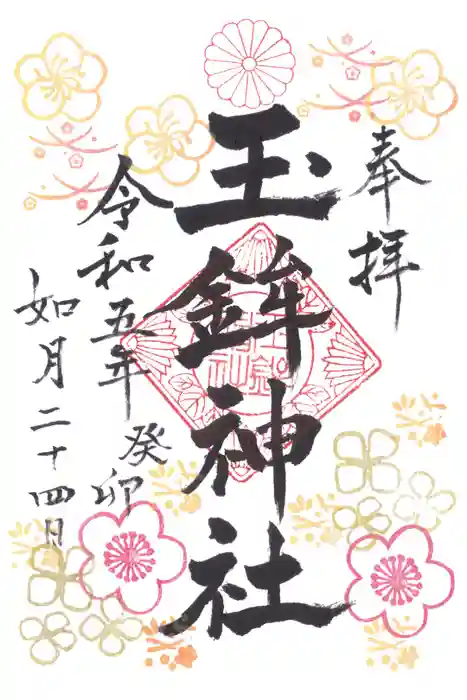 奉拝
玉鉾神社
令和五年癸卯
如月二十四日